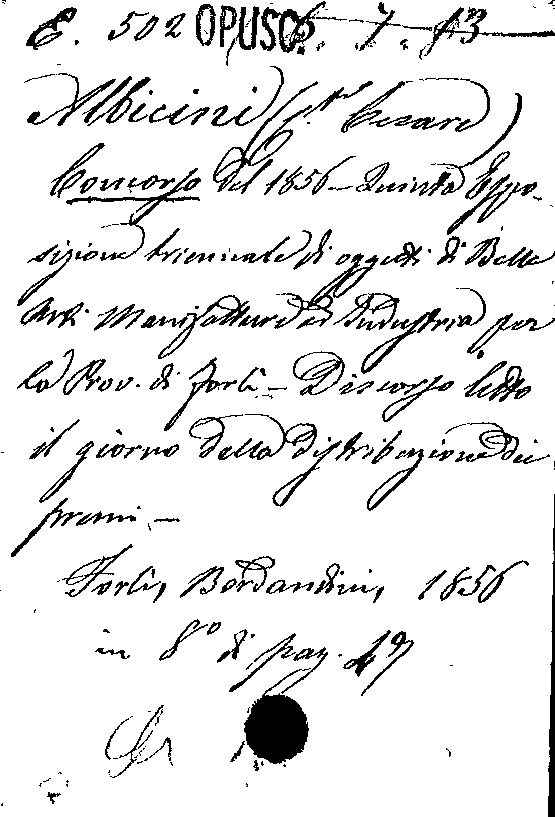 E. 502 OPUSC. 7. 13
Albicini (Cte Cesare)
Concorso del 1856 – Quinta Espo-
sizione triennale di oggetti di Belle
Arti Manifatture ed Industria per
la Prov. di Forlì – Discorso letto
il giorno della distribuzione dei
premi. –
Forlì, Bordandini, 1856
in 8º di pag. 47